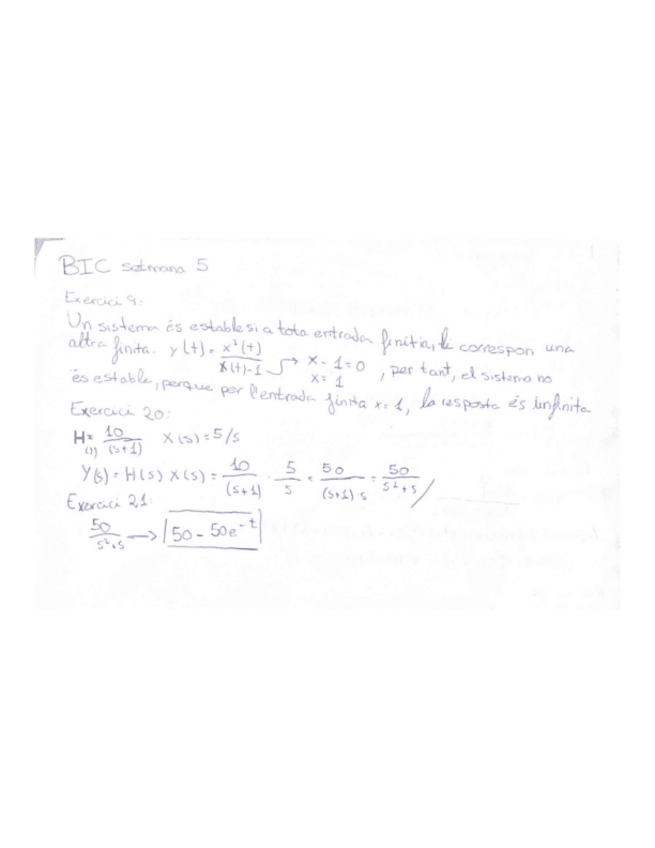 BIC setmana 5
Exercici 9:
Un sistema és estable si a tota entrada finita, li correspon una
altra finita. y(t) = x²(t) / x(t)-1 → x - 1 = 0 x = 1, per tant, el sistema no
és estable, perque per l'entrada finita x = 1, la resposta és infinita
Exercici 20:
H(s) = 10/(s+1) X(s) = 5/s
Y(s) = H(s) X(s) = 10/(s+1) · 5/s = 50/(s+1)·s = 50/s²+s
Exercici 21:
50/s²+s → 50 - 50e^-t